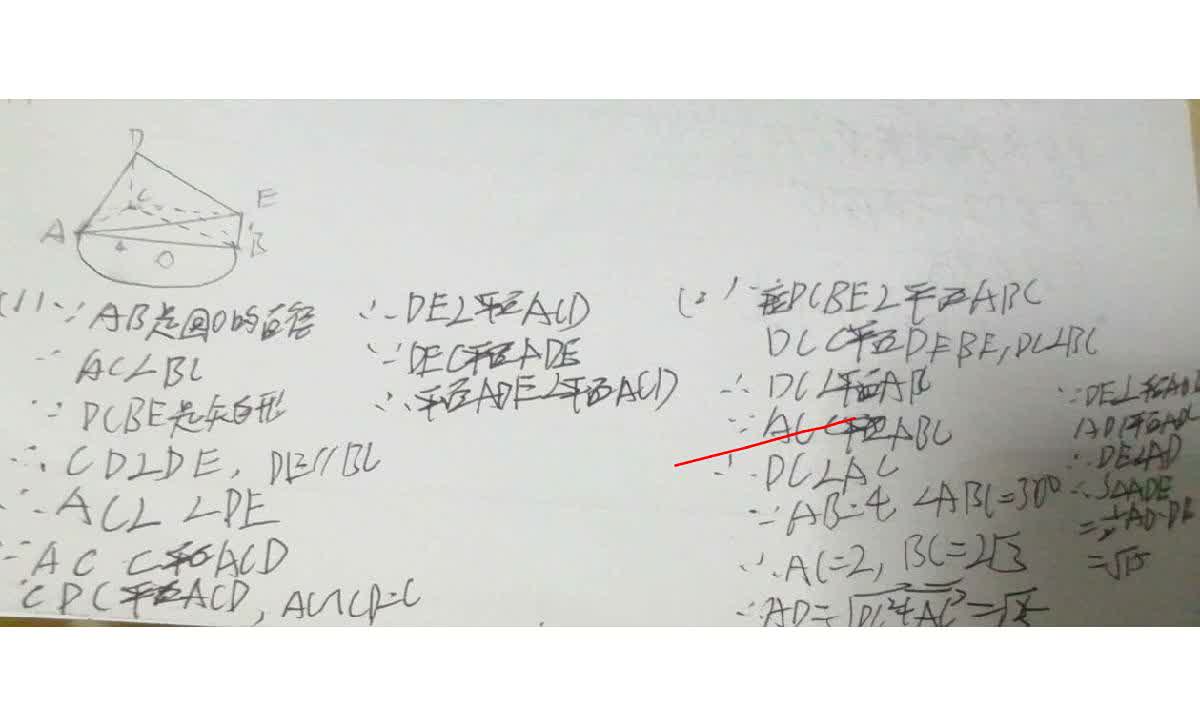 D
C
E
A
B
4
O
(1) ∵ AB是圆O的直径
∴ AC⊥BC
∵ DCBE是矩形
∴ CD⊥DE, DE//BC
∴ AC⊥DE
∵ AC⊂平面ACD
CD⊂平面ACD, AC∩CD=C
∴ DE⊥平面ACD
∵ DE⊂平面ADE
∴ 平面ADE⊥平面ACD
(2) ∵ DCBE⊥平面ABC
DC⊂平面DEBE, DC⊥BC
∴ DC⊥平面AB
∵ AC⊂平面ABC
∴ DC⊥AC
∵ AB=4, ∠ABC=30°
∴ AC=2, BC=2√3
∴ AD=√DC²+AC²=
∵ DE⊥平面
AD⊂平面
∴ DE⊥AD
∴ S△ADE
=½AD·DE
=√15